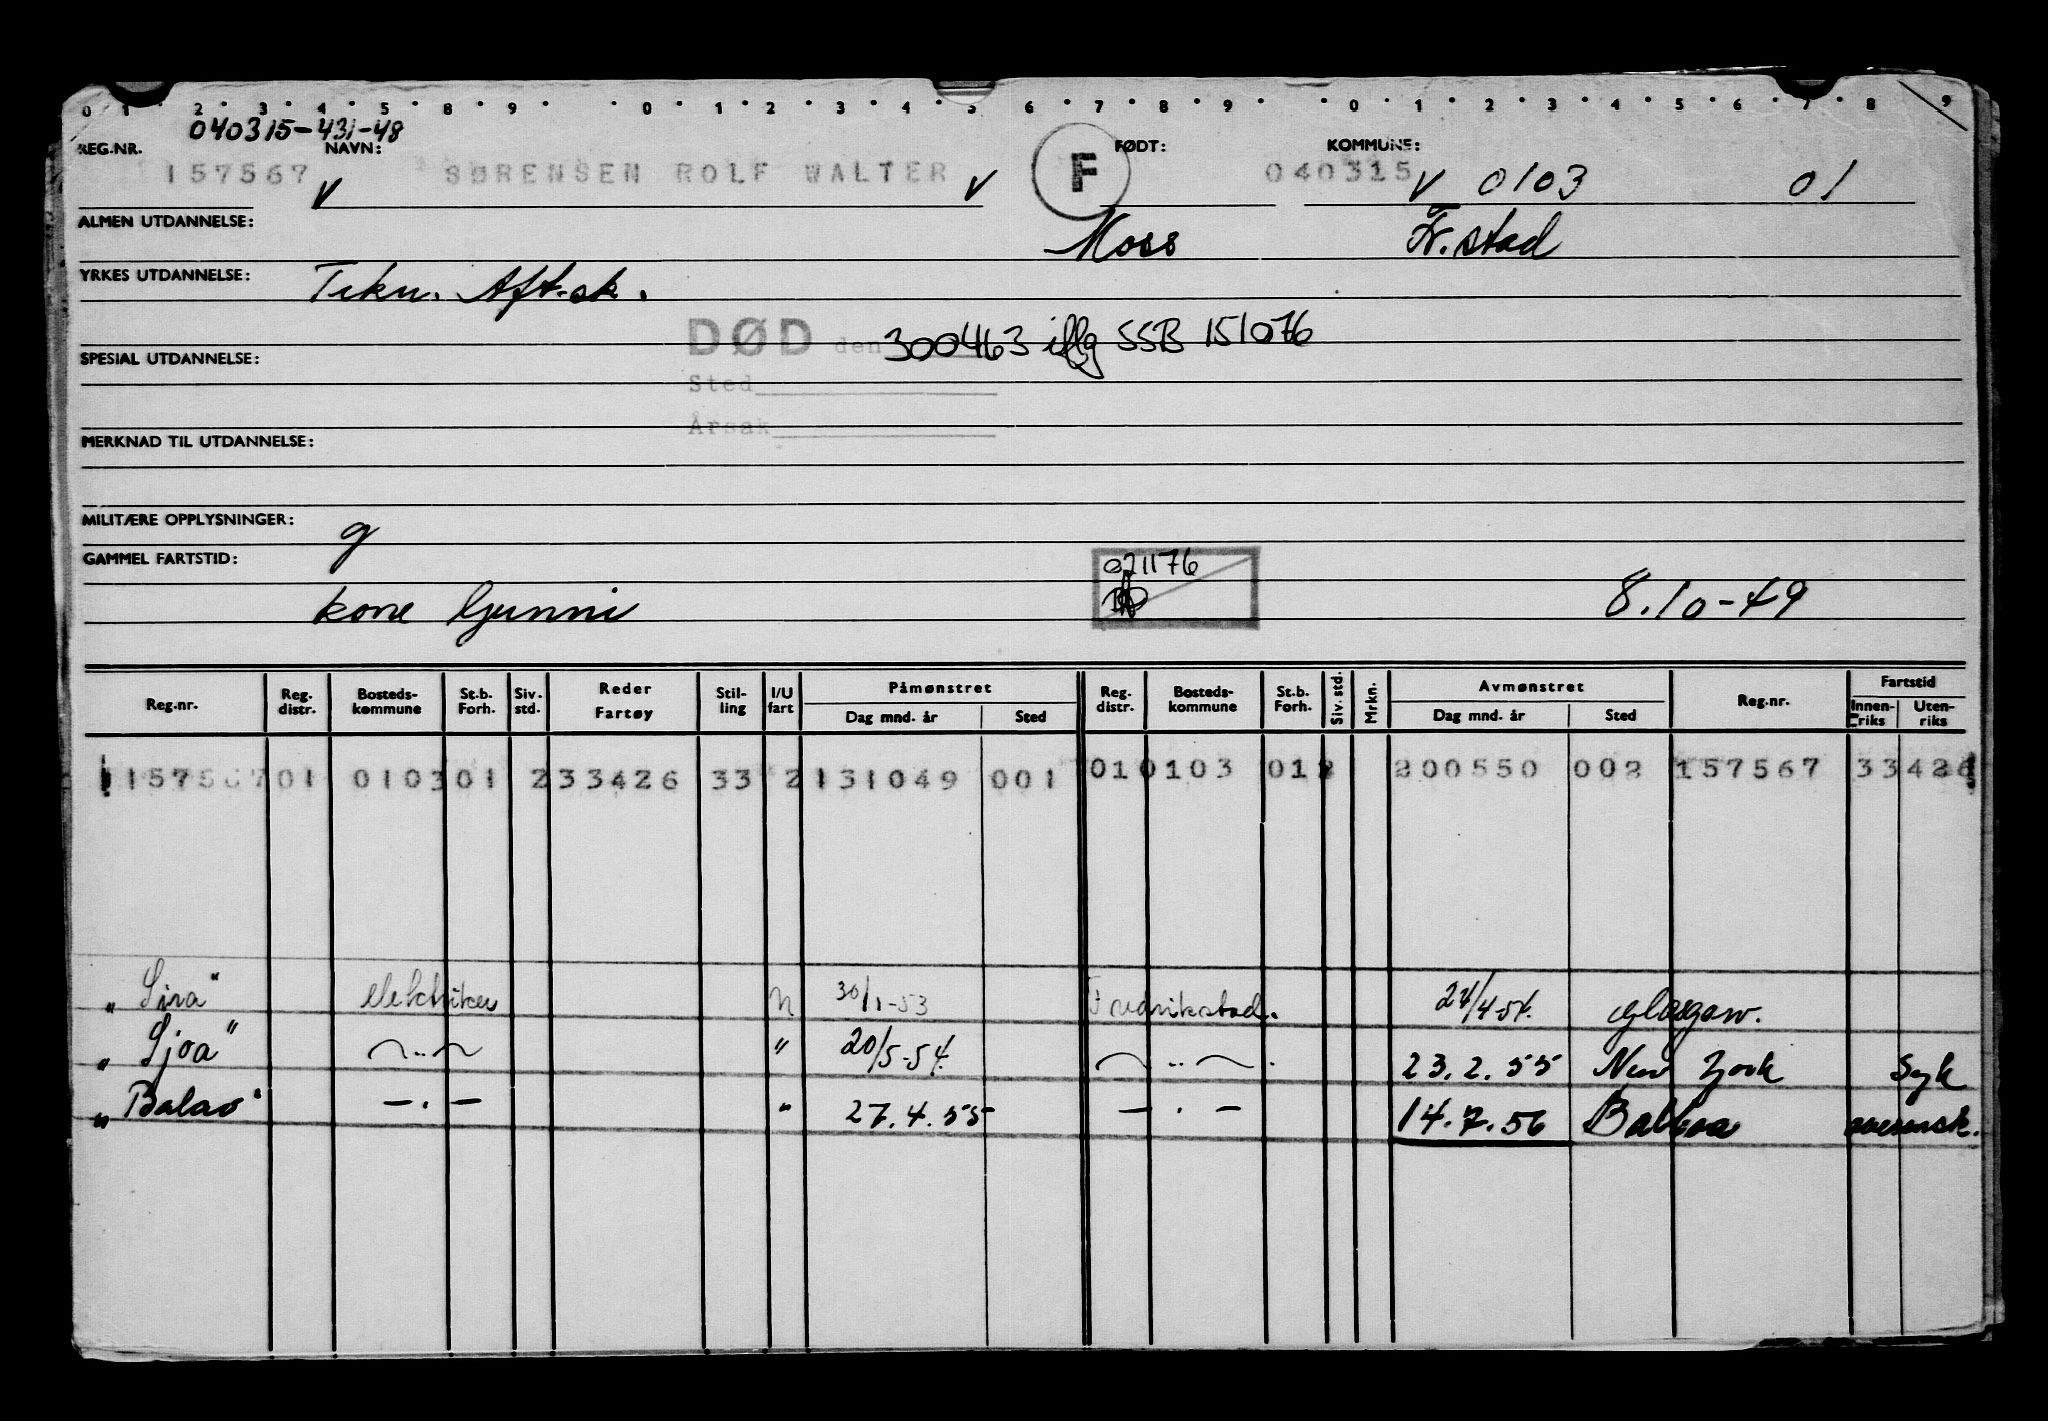 0 1 2 3 4 5 8 9 0 1 2 3 4 5 6 7 8 9 0 1 2 3 4 5 6 7 8 9
040315-431-48
REG.NR. NAVN: FØDT: KOMMUNE:
157567 V SØRENSEN ROLF WALTER V F 040315 V 0103 01
ALMEN UTDANNELSE: Moss Fr.stad
YRKES UTDANNELSE: Tekn. Aft.sk.
DØD den 300463 iflg SSB 151076
SPESIAL UTDANNELSE:
Sted
Årsak
MERKNAD TIL UTDANNELSE:
MILITÆRE OPPLYSNINGER: g
GAMMEL FARTSTID: 021176
kone Gunni 8.10-49
Reg.nr. Reg. distr. Bosteds-kommune St.b. Forh. Siv. std. Reder Fartøy Stil-ling I/U fart Påmønstret Dag mnd. år Sted Reg. distr. Bosteds-kommune St.b. Forh. Siv. std. Mrkn. Avmønstret Dag mnd. år Sted Reg.nr. Fartstid Innen-riks Uten-riks
157567 01 0103 01 2 33426 33 2 131049 001 01 0103 01 2 200550 002 157567 33426
"Sira" elektriker U 30/1-53 Fredrikstad. 24/4-54. Glasgow.
"Sjoa" " 20/5-54. 23.2.55 New York Syk
"Balao" - . - " 27.4.55 - . - 14.7.56 Balboa